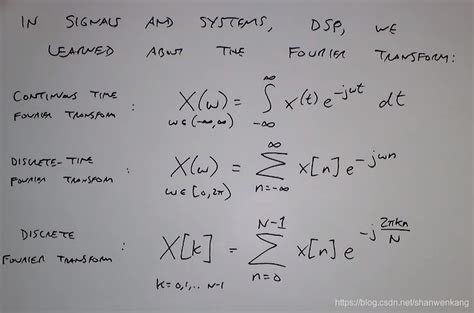 IN SIGNALS AND SYSTEMS, DSP, WE
LEARNED ABOUT THE FOURIER TRANSFORM:
CONTINUOUS TIME FOURIER TRANSFORM : X(ω) = ∫_{-∞}^{∞} x(t) e^{-jωt} dt
ω∈(-∞,∞)
DISCRETE-TIME FOURIER TRANSFORM : X(ω) = ∑_{n=-∞}^{∞} x[n] e^{-jωn}
ω∈[0,2π)
DISCRETE FOURIER TRANSFORM : X[k] = ∑_{n=0}^{N-1} x[n] e^{-j\frac{2πkn}{N}}
k=0,1,.. N-1
https://blog.csdn.net/shanwenkang